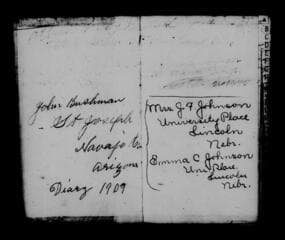 John Bushman
St Joseph
Navajo Co.
Arizona.
Diary 1909
Mrs J F Johnson
University Place
Lincoln
Nebr.
Emma C Johnson
Uni Place
Lincoln
Nebr.